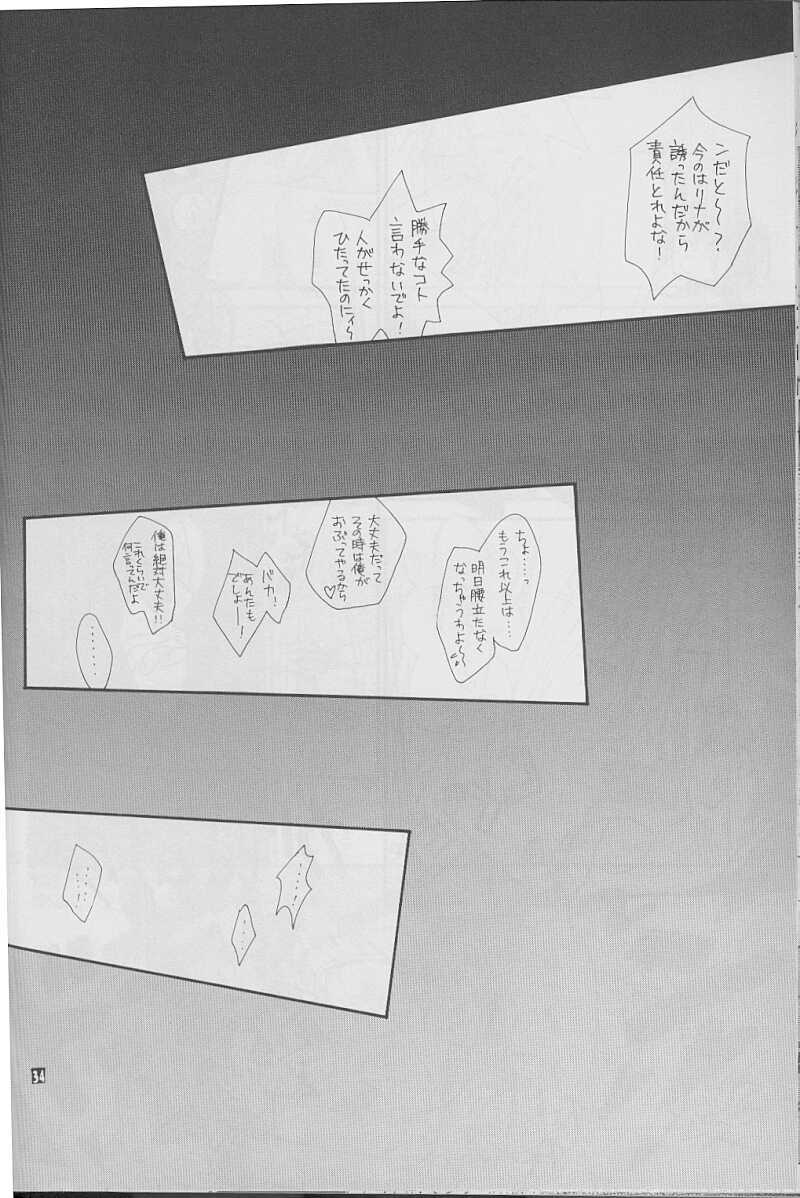 ンだと〜?
今のはリナが
誘ったんだから
責任とれよな!
勝手なコト
言わないでよ!
人がせっかく
ひたってたのにィ〜
ちょ……っ
もうこれ以上は……
明日腰立たなく
なっちゃうわよ〜
大丈夫だって
その時は俺が
おぶってやるから♡
バカ!
あんたも
でしょー!
俺は絶対大丈夫!!
これくらいで
何言ってんだよ
……
…!
…
…!
34